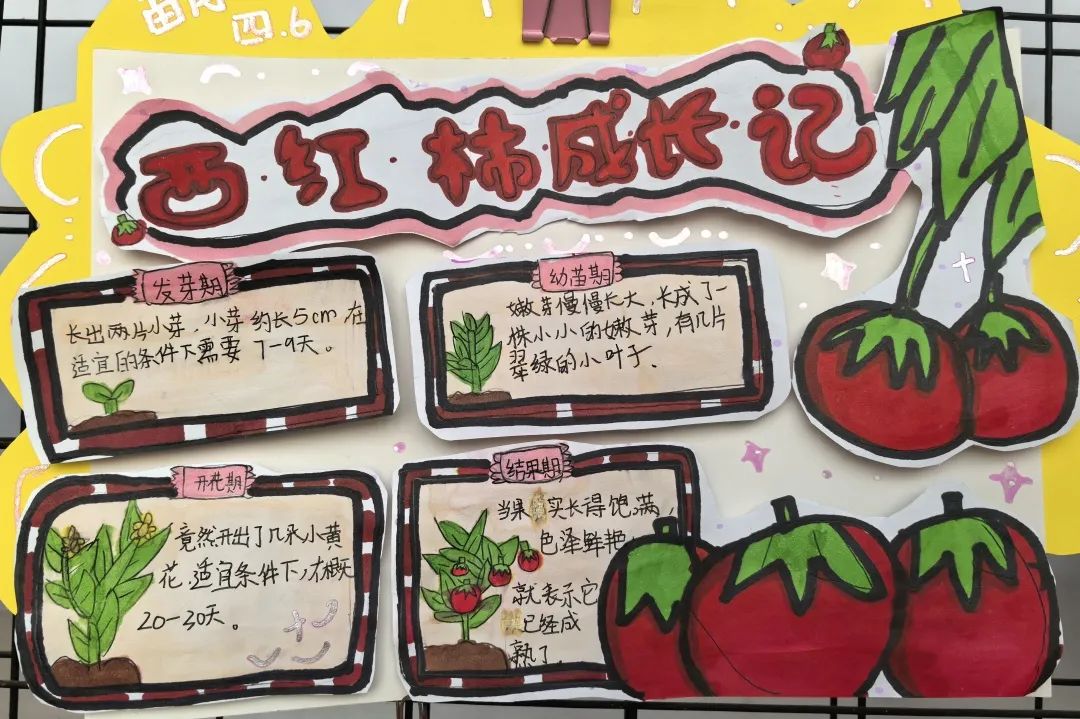 四.6
西·红·柿成·长·记
发芽期
长出两片小芽，小芽约长5cm，在
适宜的条件下需要7-9天。
幼苗期
嫩芽慢慢长大，长成了一
株小小的嫩芽，有几片
翠绿的小叶子.
开花期
竟然开出了几朵小黄
花，适宜条件下，大概
20-30天。
结果期
当果实长得饱满，
色泽鲜艳，
就表示它
已经成
熟了.